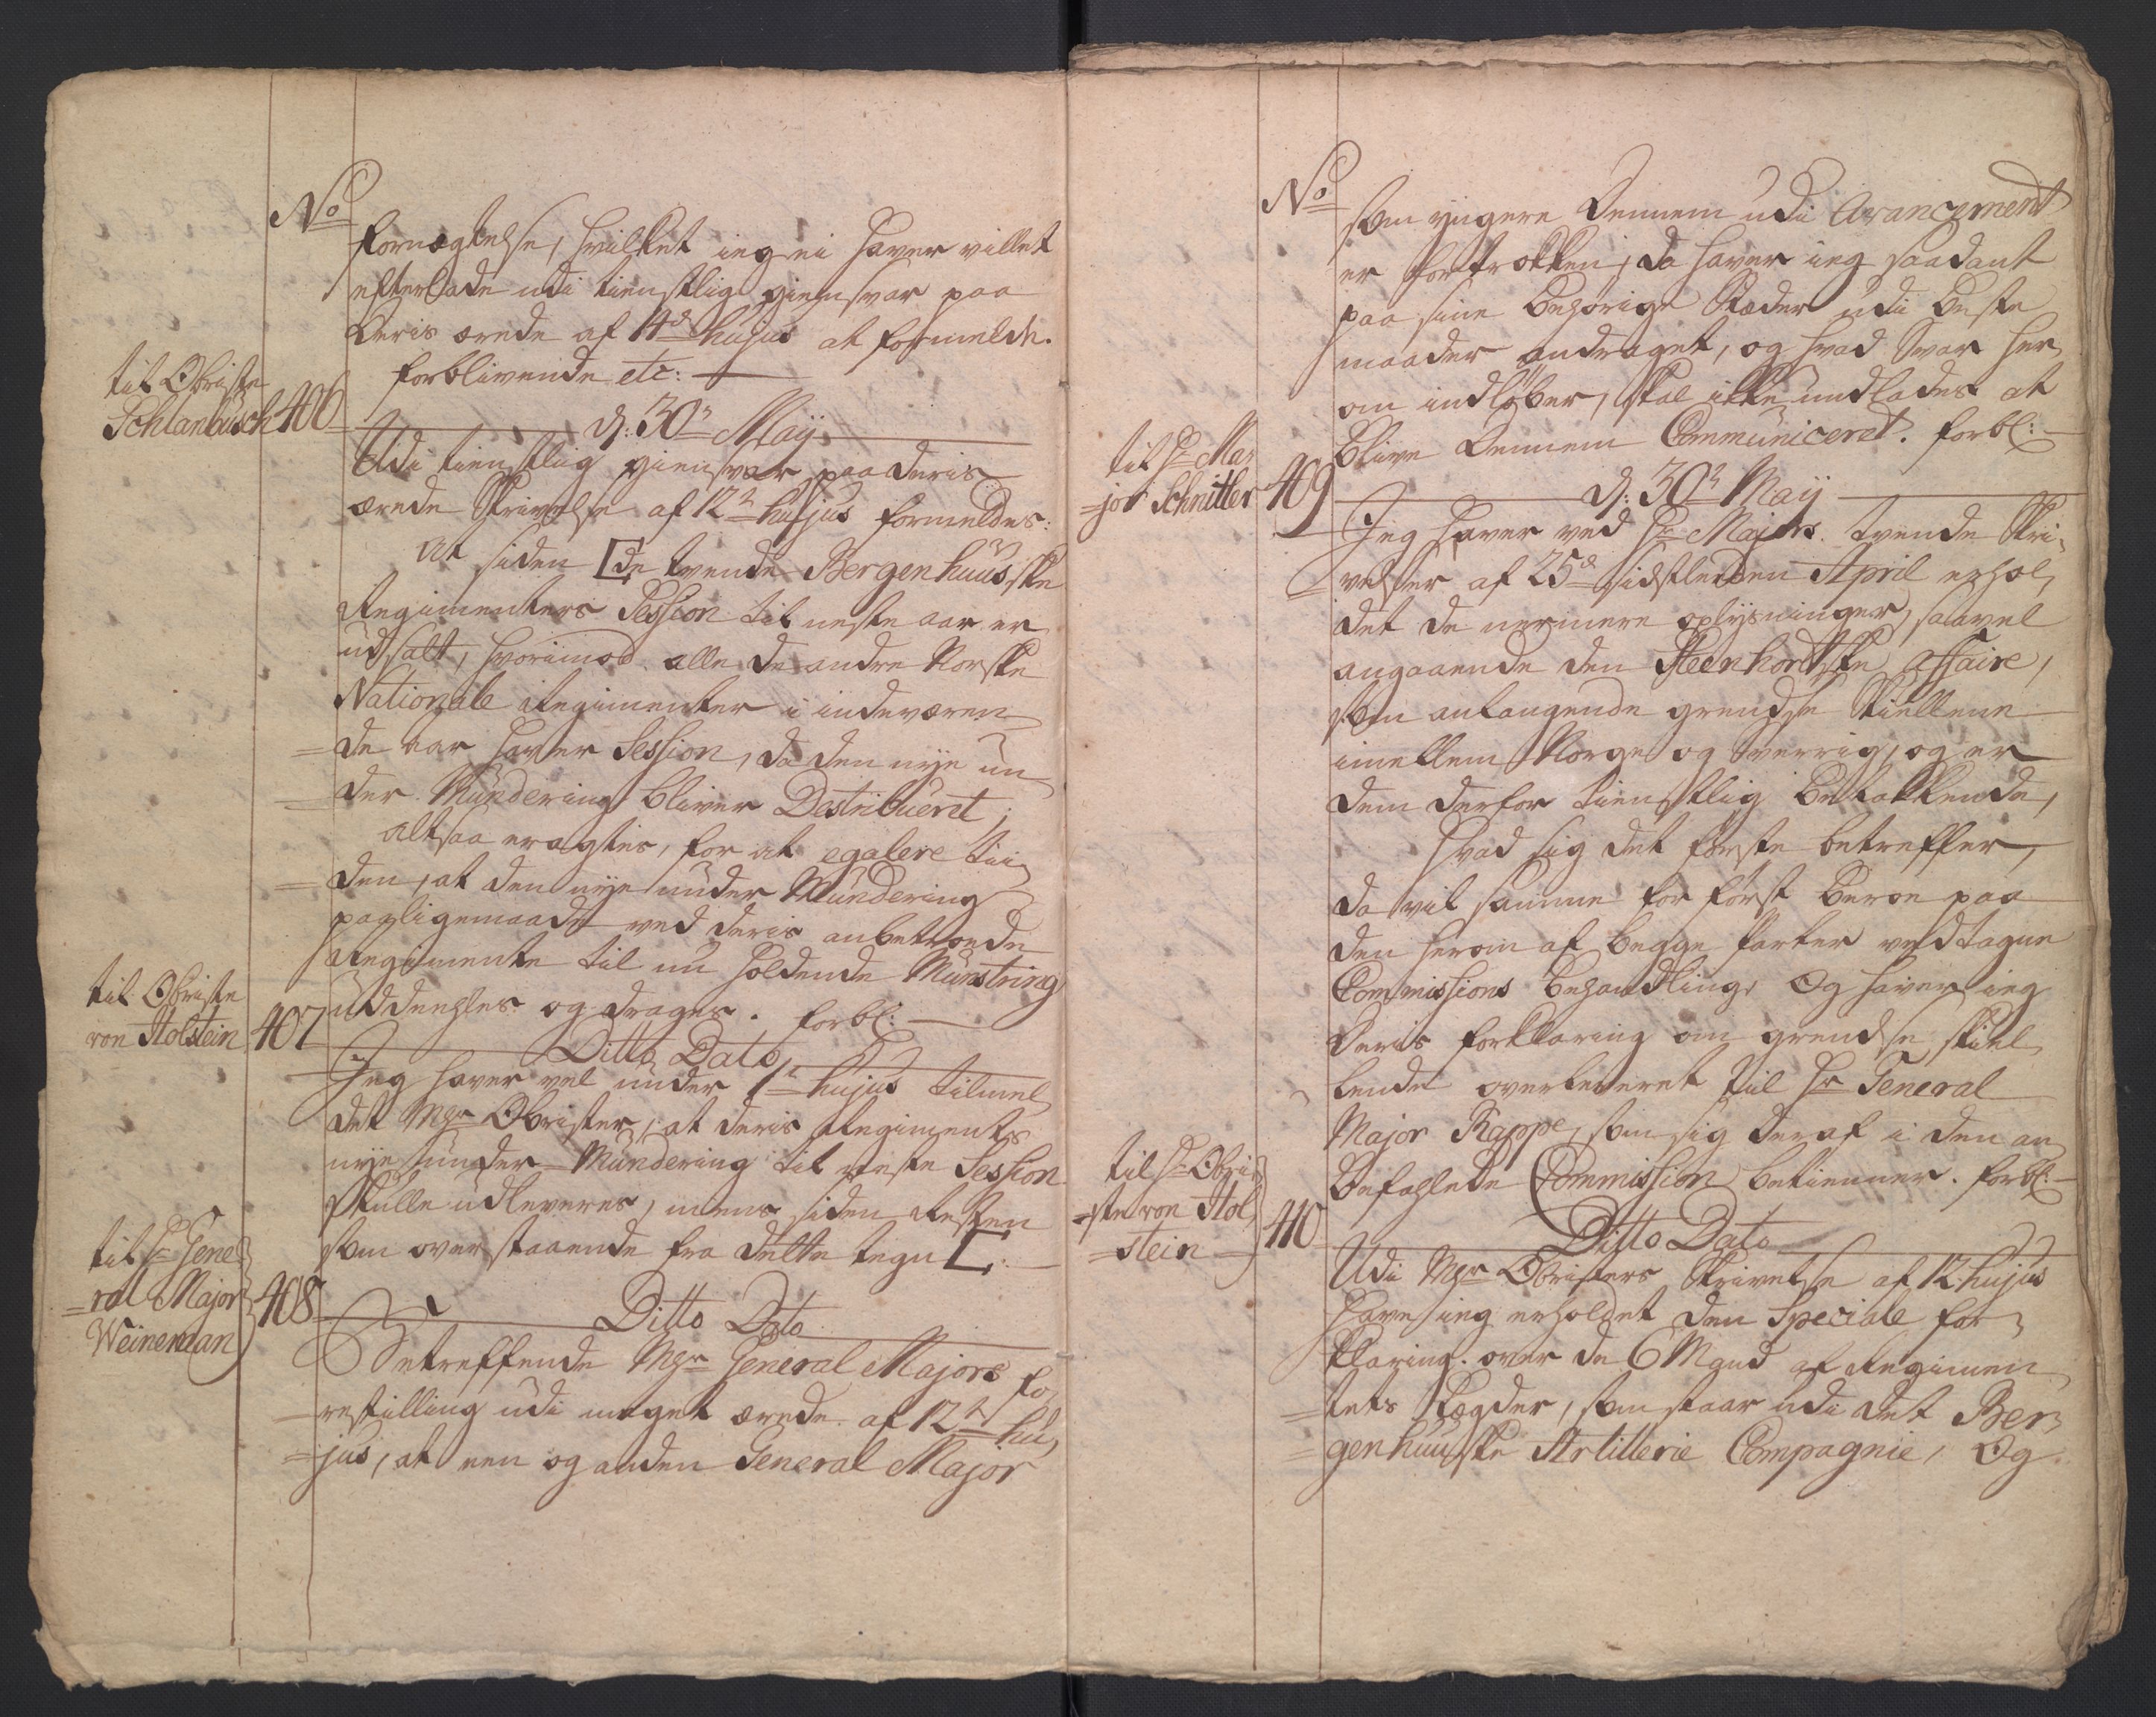 No
fornægtelse, hvilket jeg ei haver villet
efterlade udi tienstlig giensvar paa
Deris ærede af 4de hujus at formelde.
forblivende etc:
til Obriste
Schlanbusch 406
d: 30te Maij
Udi tienstlig giensvar paa deris
ærede Skrivelse af 12te hujus formeldes:
At siden [de tvende Bergenhuusske
Regimenters Session til neste aar er
udsatt, hvorimod alle de andre Norske
Nationale Regimenter i indeværen
=de aar haver Session, da den nye un
=der Mundering bliver Destribueret;
altsaa eragtes, for at egalere tii
=den, at den nye under Mundering
paa ligemaade ved deris anbetroede
Regimente til nu holdende Munstring
uddeeles og drages. forbl:
til Obriste
von Holstein 407
Ditto Dato
Jeg haver vel under 1te hujus tilmel
det Mhr Obrister, at deris Regiments
nye under Mundering til neste Session
skulle udleveres, mens siden Resten
som overstaaende fra dette tegn [:
til Hr Gene
=ral Major
Weineman 408
Ditto Dato
Betreffende Mhr General Majors fo
=restilling udi meget ærede af 12te hu
=jus, at een og anden General Major
No
som yngere Dennem udi Avancement
er fortrokken, da haver jeg saadant
paa sine behørige Stæder udi beste
maader andraget, og hvad Svar her
om indløber, skal ikke undlades at
blive Dennem Communiceret. forbl:
til Hr Ma
=jor Schnitler 409
d: 30te Maij
Jeg haver ved Hr Majors tvende Skri
=velser af 25de sidstleden April erhol
det de nermere oplysninger, saavel
angaaende den Steenhortske affaire,
som anlangende grendse Skiellene
imellem Norge og Sverrig, og er
dem derfor tienstlig betakkende,
Hvad sig det første betreffer,
da vil samme for først beroe paa
den herom af begge Parter vedtagne
Commissions behandling, Og haver jeg
Deris forklaring om grendse skiel
lende overleveret til Hr General
Major Rappe, som sig deraf i den an
befahlede Commission betienner. forbl:
til Hr Obri
=ste von Hol
=stein 410
Ditto Dato
Udi Mhr Obristers Skrivelse af 12 hujus
have jeg erholdet den Speciale for
klaring over de 6 Mand af Regimen
=tets Lægder, som staar udi det Ber
=genhuuske Artillerie Compagnie, Og